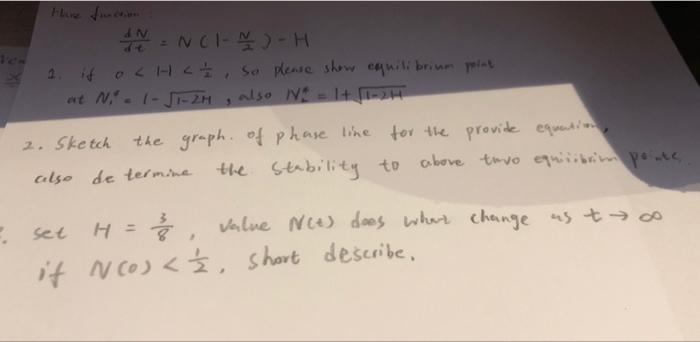 Have function:
dN/dt = N(1-N/2)-H
1. if 0 < H < 1/2, so please show equilibrium point
at N₁* = 1-√1-2H, also N₂* = 1+√1-2H
2. Sketch the graph. of phase line for the provide equation,
also determine the stability to above two equiibrim points.
3. set H = 3/8, value N(t) does what change as t → ∞
if N(0) < 1/2, short describe.